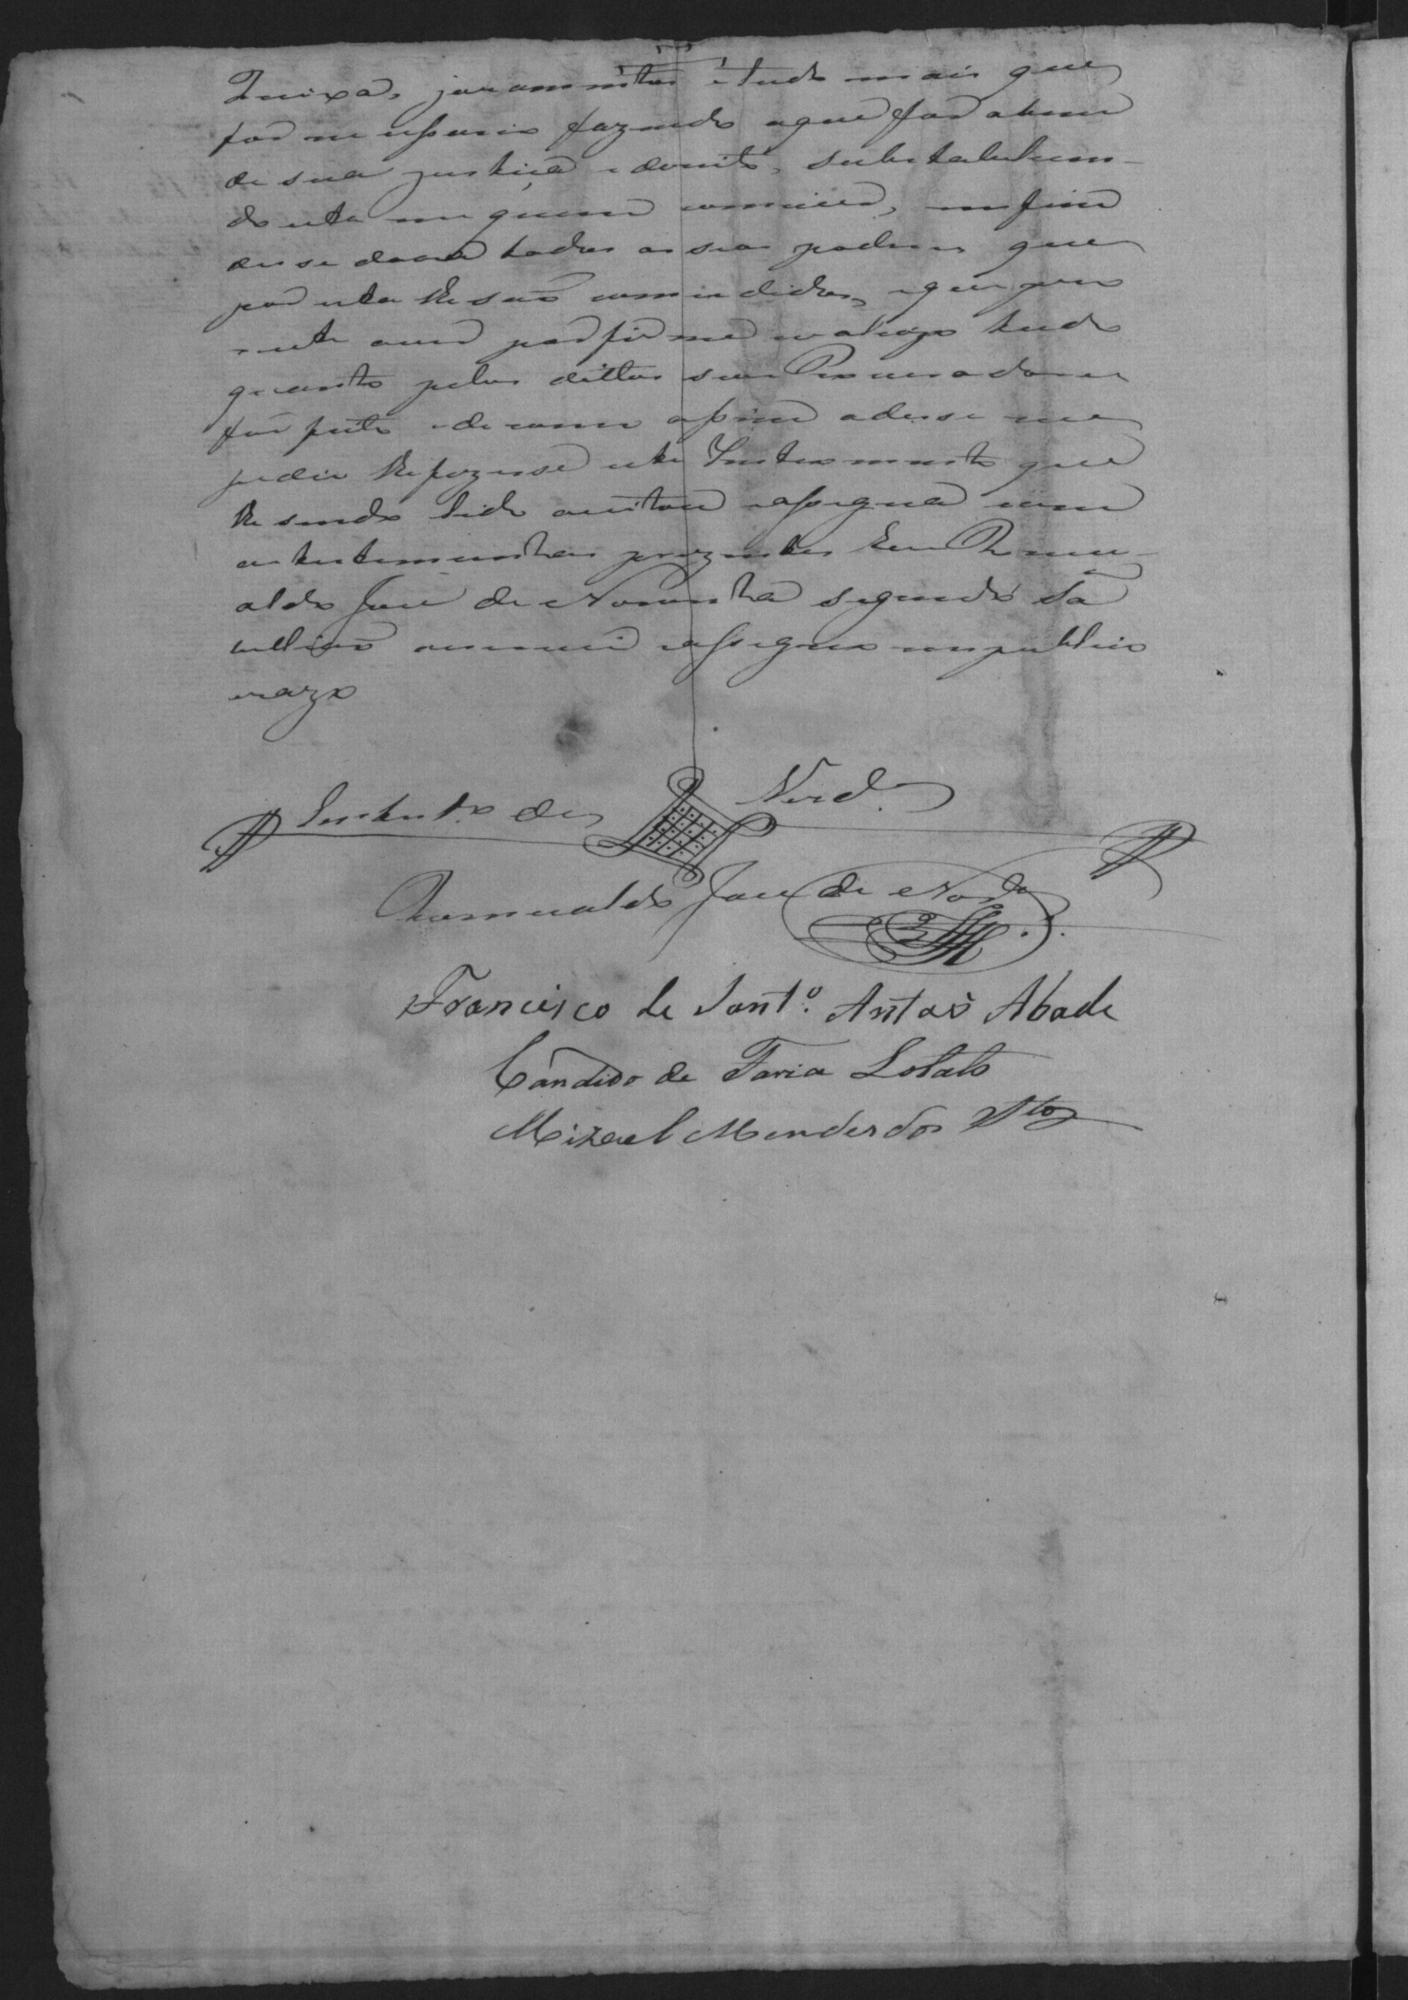 Queixa, juramentos e tudo mais que
for necessario fazendo a que for a bem
de sua justiça e direito, substabelecen-
do esta em quem convier, enfim
disse dava todos os seos poderes que
por esta lhe são concedidos, e que pro
mete aver por firme e valiozo tudo
quanto pelos dittos seos Procuradores
for feito e de como assim a disse me
pedio lhe fizesse este Instrumento que
lhe sendo lido aceitou e assigna com
as testemunhas prezentes Eu Romu-
aldo José de Noronha segundo Ta
bellião escrevi e assigno em publico
e razo
Em test.º de Verd.e
Romualdo José de Nor.ª
Francisco de Sant.º Antão Abade
Candido de Faria Lobato
Mizael Mendes dos S.tos